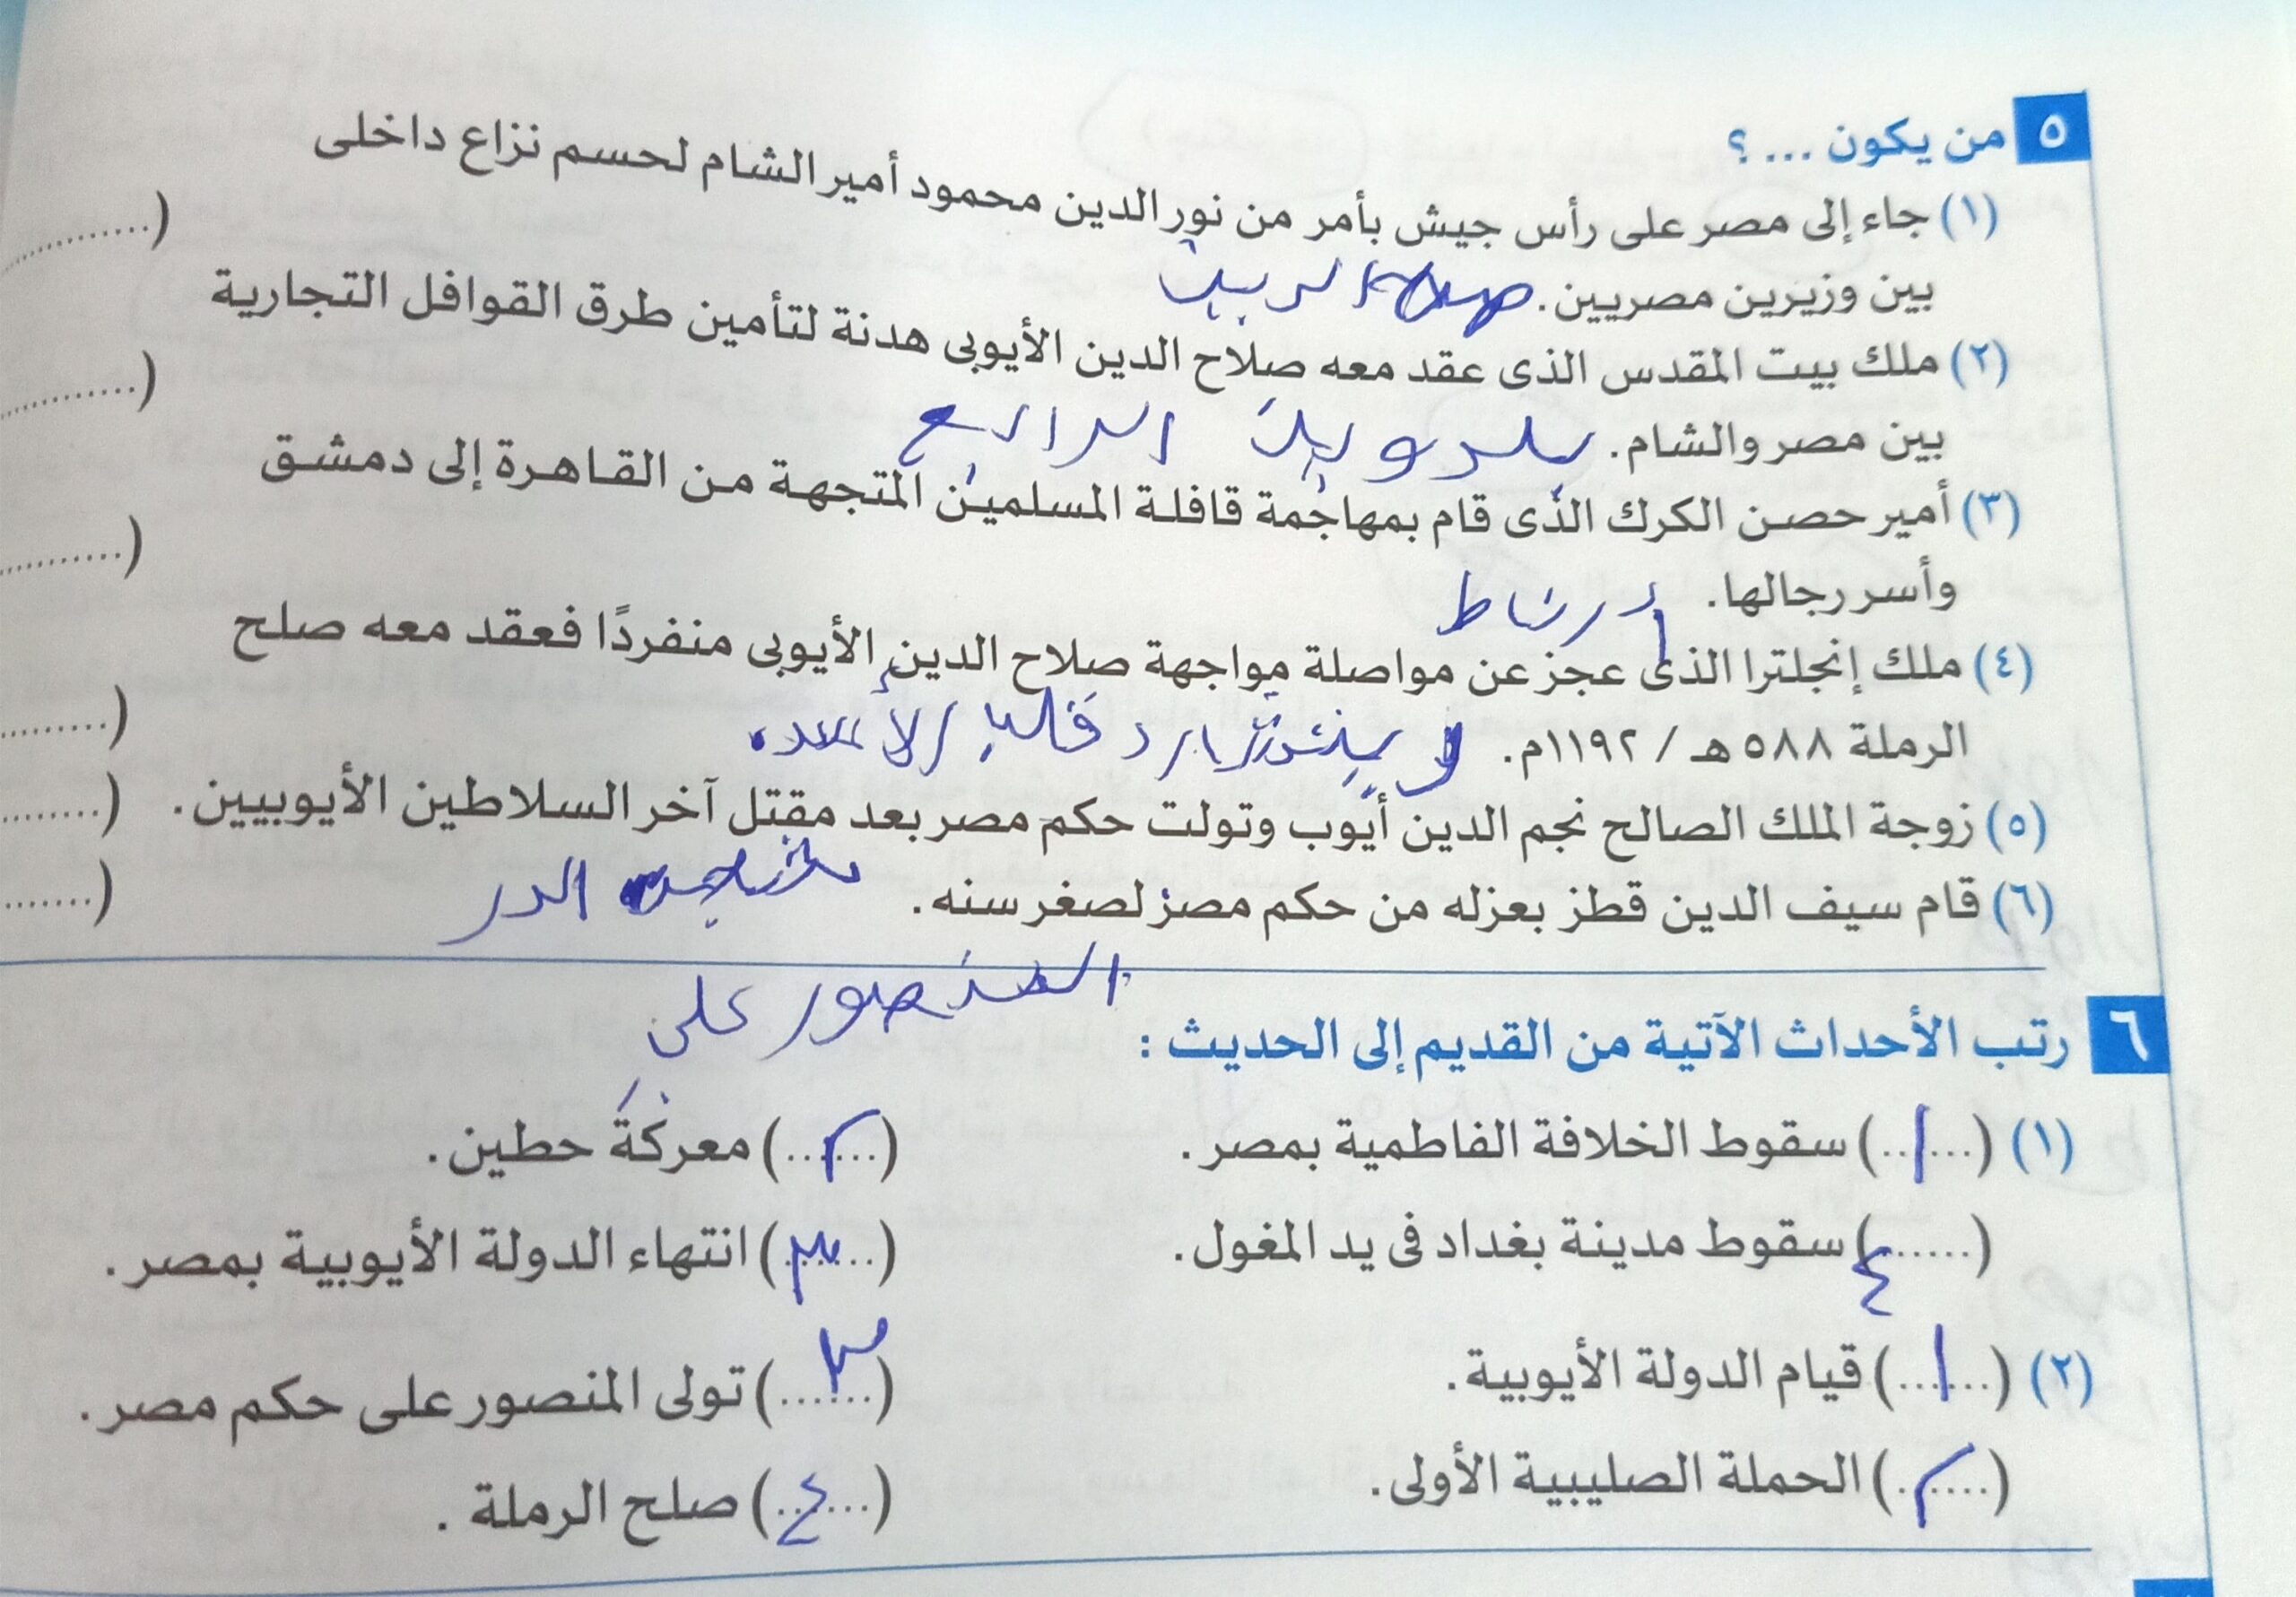 ٥ من يكون ... ؟
(١) جاء إلى مصر على رأس جيش بأمر من نور الدين محمود أمير الشام لحسم نزاع داخلى
بين وزيرين مصريين. صلاح الدين (..........
(٢) ملك بيت المقدس الذى عقد معه صلاح الدين الأيوبى هدنة لتأمين طرق القوافل التجارية
بين مصر والشام. بلدوين الرابع (..........
(٣) أمير حصن الكرك الذى قام بمهاجمة قافلة المسلمين المتجهة من القاهرة إلى دمشق
وأسر رجالها. أرناط (..........
(٤) ملك إنجلترا الذى عجز عن مواصلة مواجهة صلاح الدين الأيوبى منفردًا فعقد معه صلح
الرملة ٥٨٨ هـ / ١١٩٢م. ريتشارد قلب الأسد (..........
(٥) زوجة الملك الصالح نجم الدين أيوب وتولت حكم مصر بعد مقتل آخر السلاطين الأيوبيين. (........
شجر الدر
(٦) قام سيف الدين قطز بعزله من حكم مصر لصغر سنه. (........
المنصور على
٦ رتب الأحداث الآتية من القديم إلى الحديث :
(١) (١) سقوط الخلافة الفاطمية بمصر. (٢) معركة حطين.
(٤) سقوط مدينة بغداد فى يد المغول. (٣) انتهاء الدولة الأيوبية بمصر.
(٢) (١) قيام الدولة الأيوبية. (٣) تولى المنصور على حكم مصر.
(٢) الحملة الصليبية الأولى. (٤) صلح الرملة .